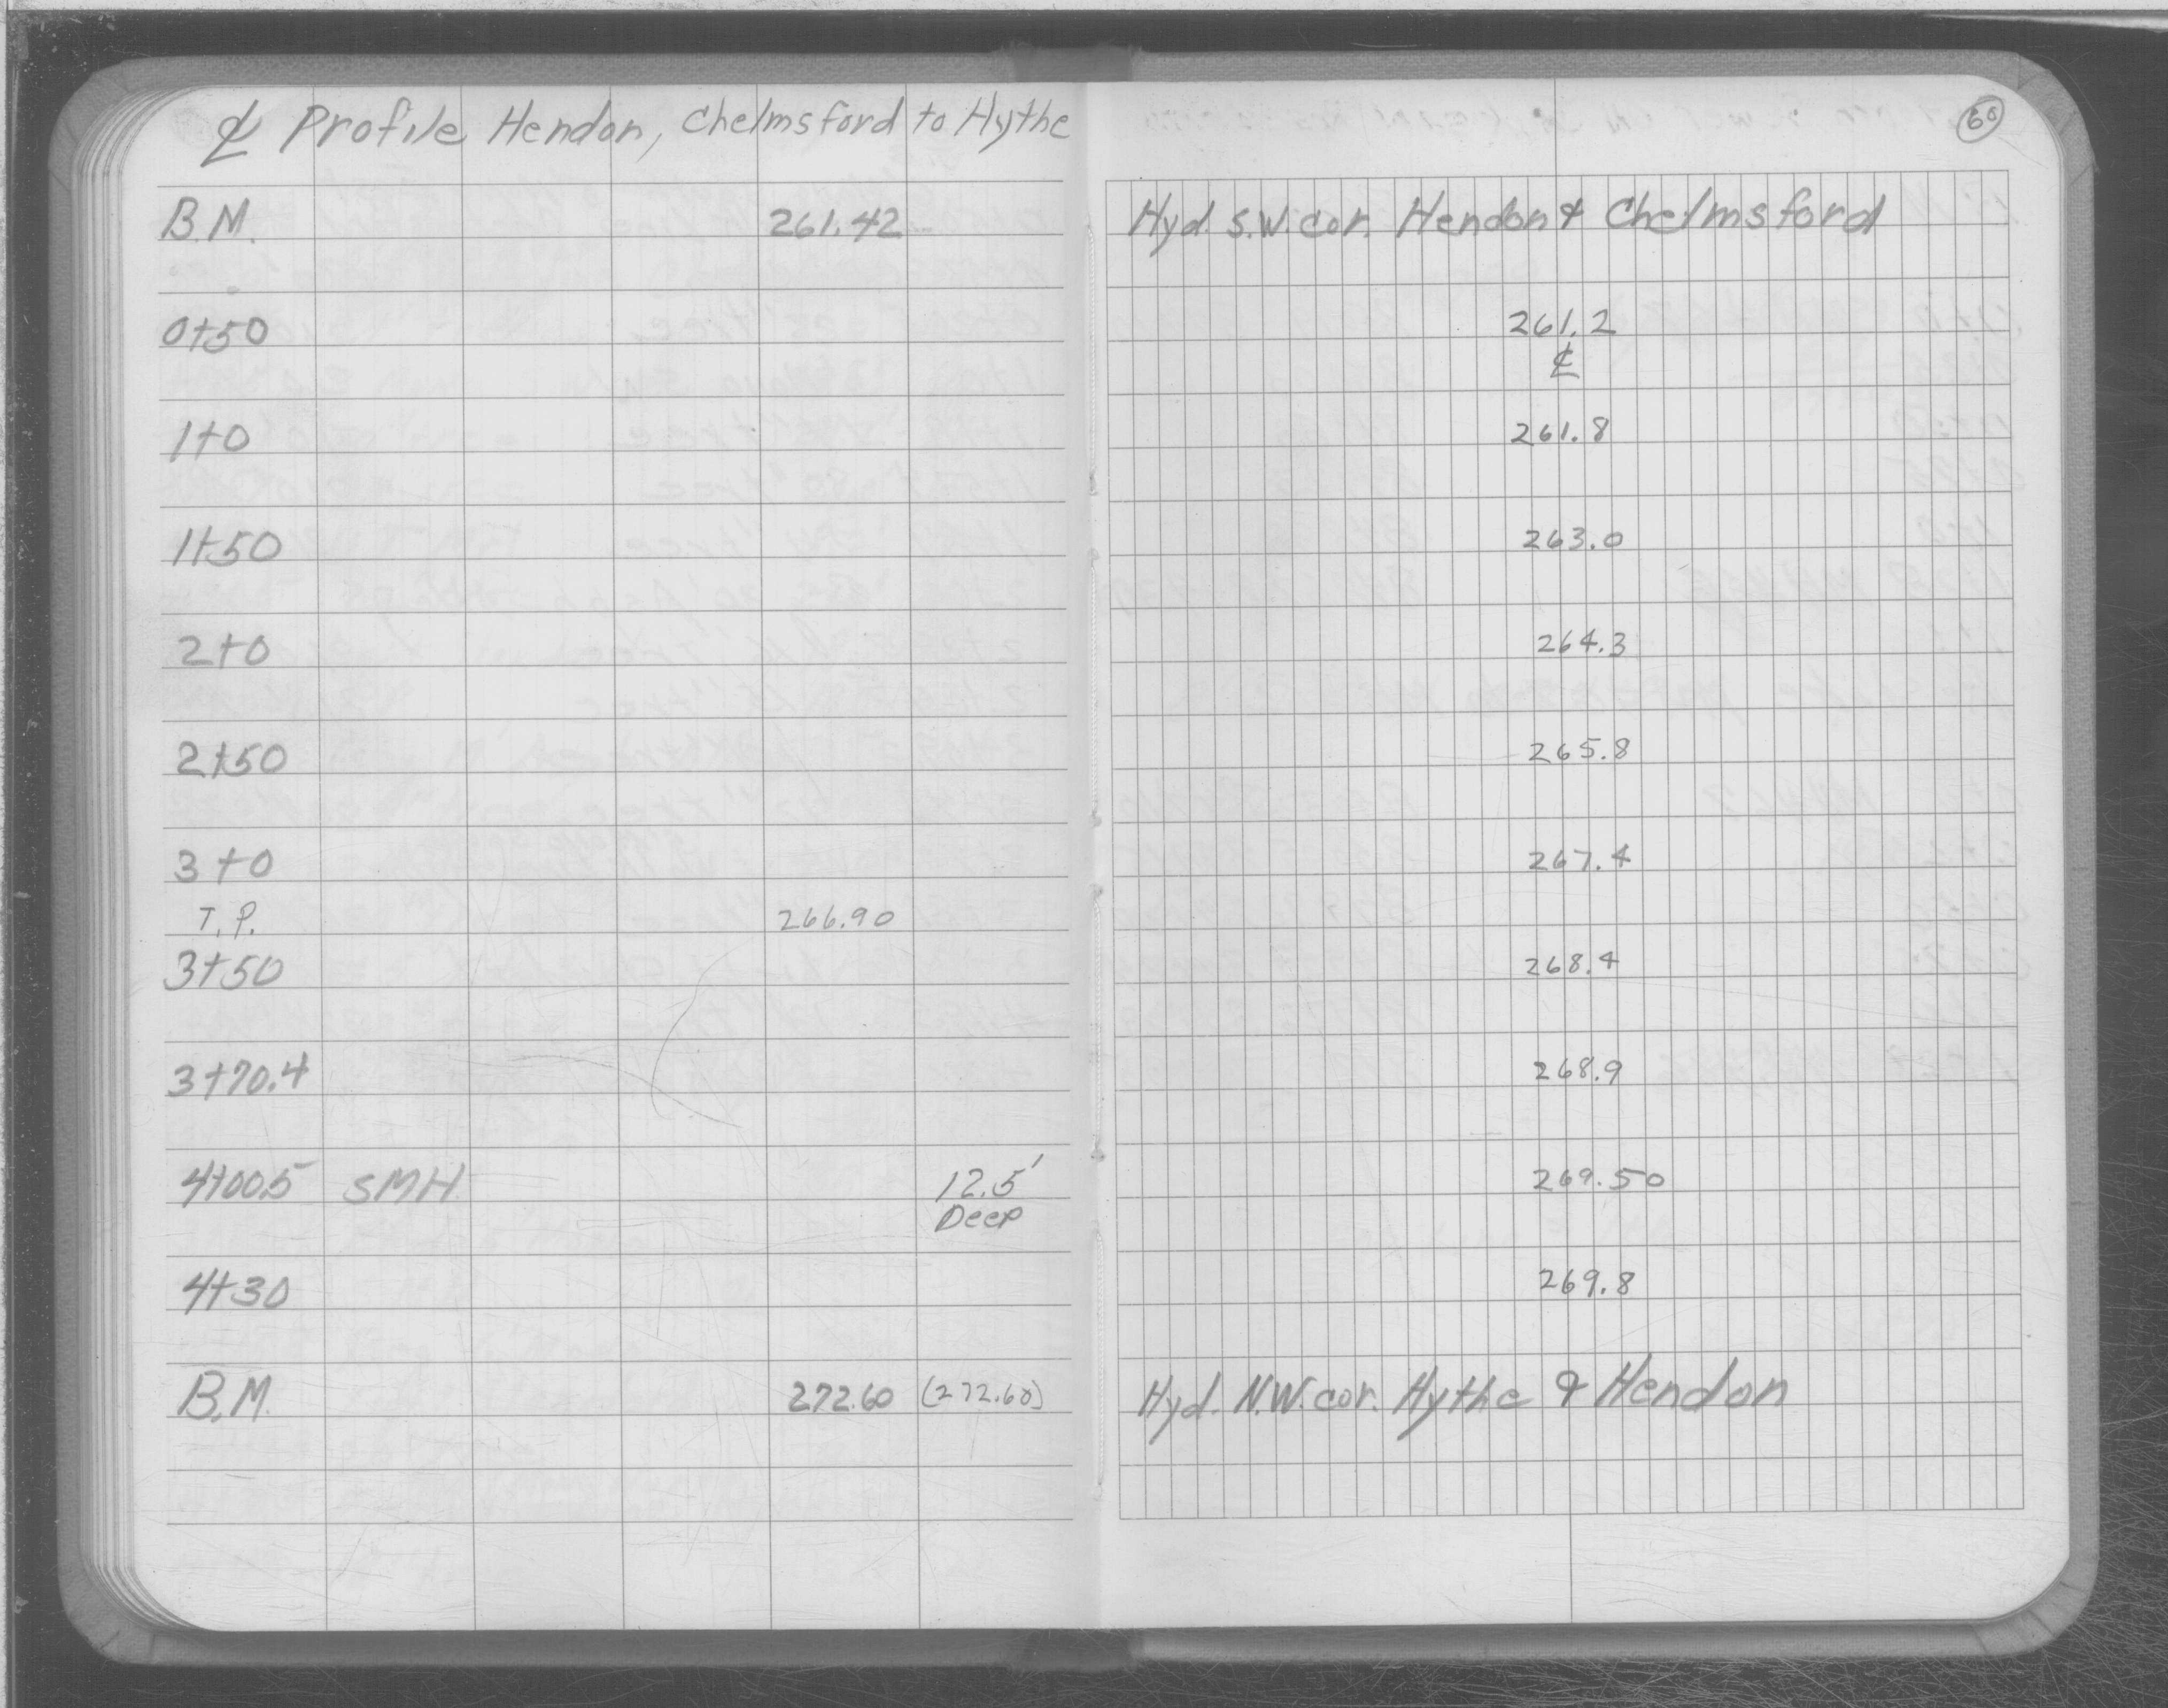 ℄ Profile Hendon, Chelmsford to Hythe
60
B.M. 261.42 Hyd. S.W. cor. Hendon & Chelmsford
0+50 261.2
℄
1+0 261.8
1+50 263.0
2+0 264.3
2+50 265.8
3+0 267.4
T.P. 266.90
3+50 268.4
3+70.4 268.9
4+00.5 SMH 12.5' 269.50
Deep
4+30 269.8
B.M. 272.60 (272.60) Hyd. N.W. cor. Hythe & Hendon